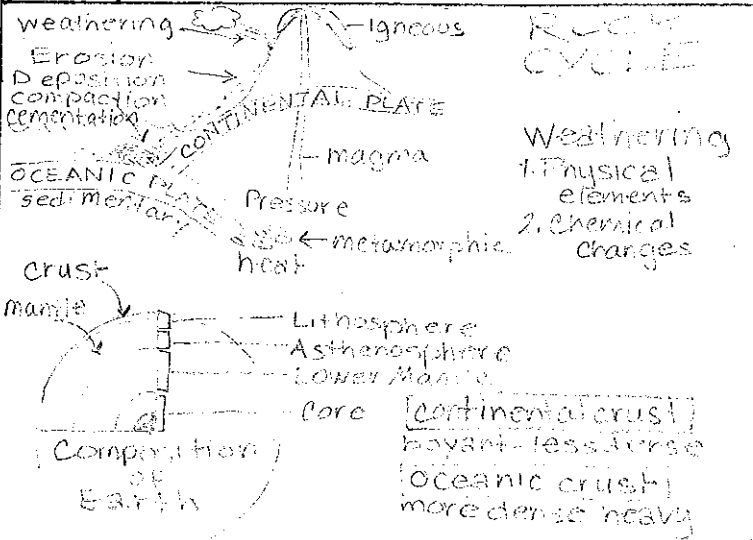 weathering
Igneous
ROCK
CYCLE
Erosion
Deposition
compaction
cementation
CONTINENTAL PLATE
magma
OCEANIC PLATE
sedimentary
Pressure
metamorphic
heat
Weathering
1. Physical
elements
2. Chemical
changes
crust
mantle
Lithosphere
Asthenosphere
Lower Mantle
Core
Composition
of
Earth
continental crust
boyant-less dense
oceanic crust
more dense heavy